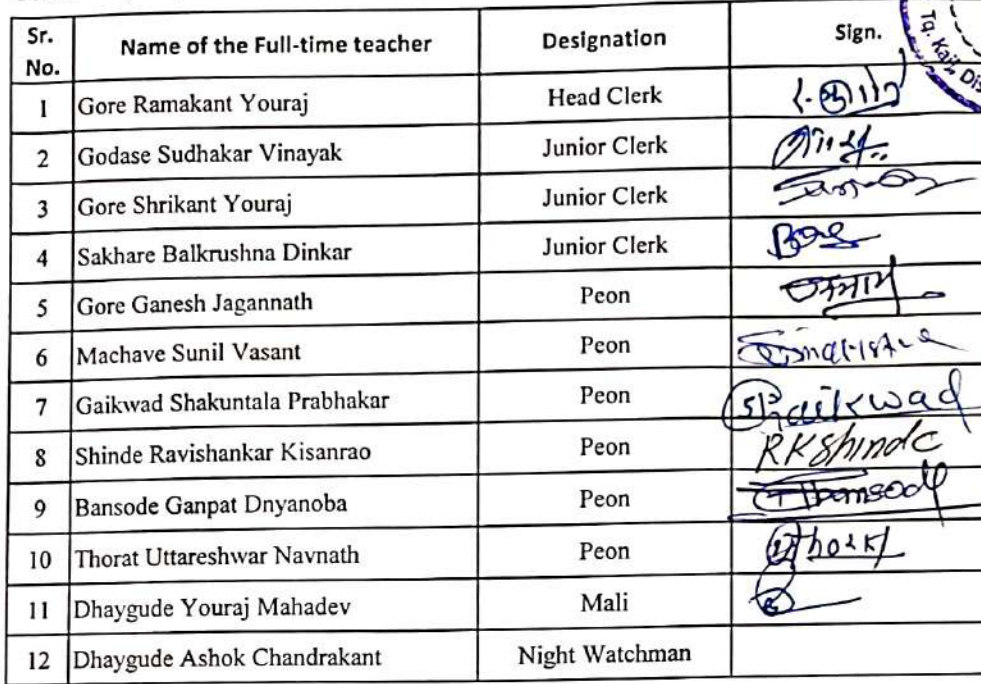 Sr. No. Name of the Full-time teacher Designation Sign.
1 Gore Ramakant Youraj Head Clerk
2 Godase Sudhakar Vinayak Junior Clerk
3 Gore Shrikant Youraj Junior Clerk
4 Sakhare Balkrushna Dinkar Junior Clerk
5 Gore Ganesh Jagannath Peon
6 Machave Sunil Vasant Peon
7 Gaikwad Shakuntala Prabhakar Peon
8 Shinde Ravishankar Kisanrao Peon RKShinde
9 Bansode Ganpat Dnyanoba Peon
10 Thorat Uttareshwar Navnath Peon
11 Dhaygude Youraj Mahadev Mali
12 Dhaygude Ashok Chandrakant Night Watchman
Tq. Kaij, Dis